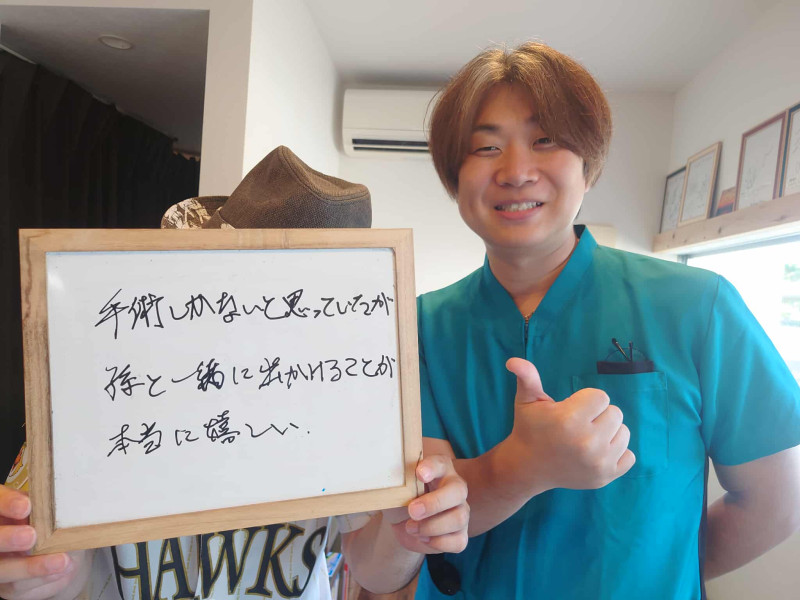 手術しかないと思っていたが
孫と一緒に出かけることが
本当に嬉しい.
HAWKS